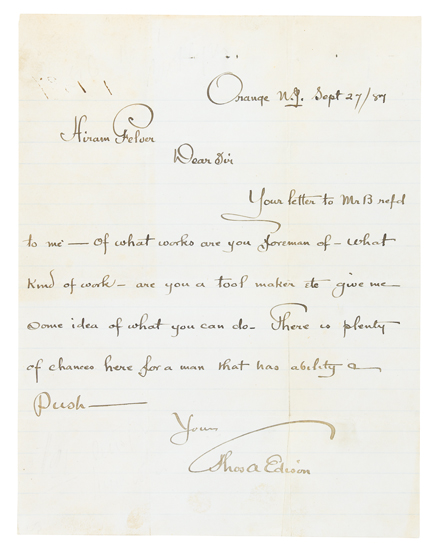 Orange N.J. Sept 27/87
Hiram Felver
Dear Sir
Your letter to Mr B refd
to me — Of what works are you foreman of - what
Kind of work - are you a tool maker etc give me
some idea of what you can do - There is plenty
of chances here for a man that has ability &
Push —
Yours
Thos A Edison